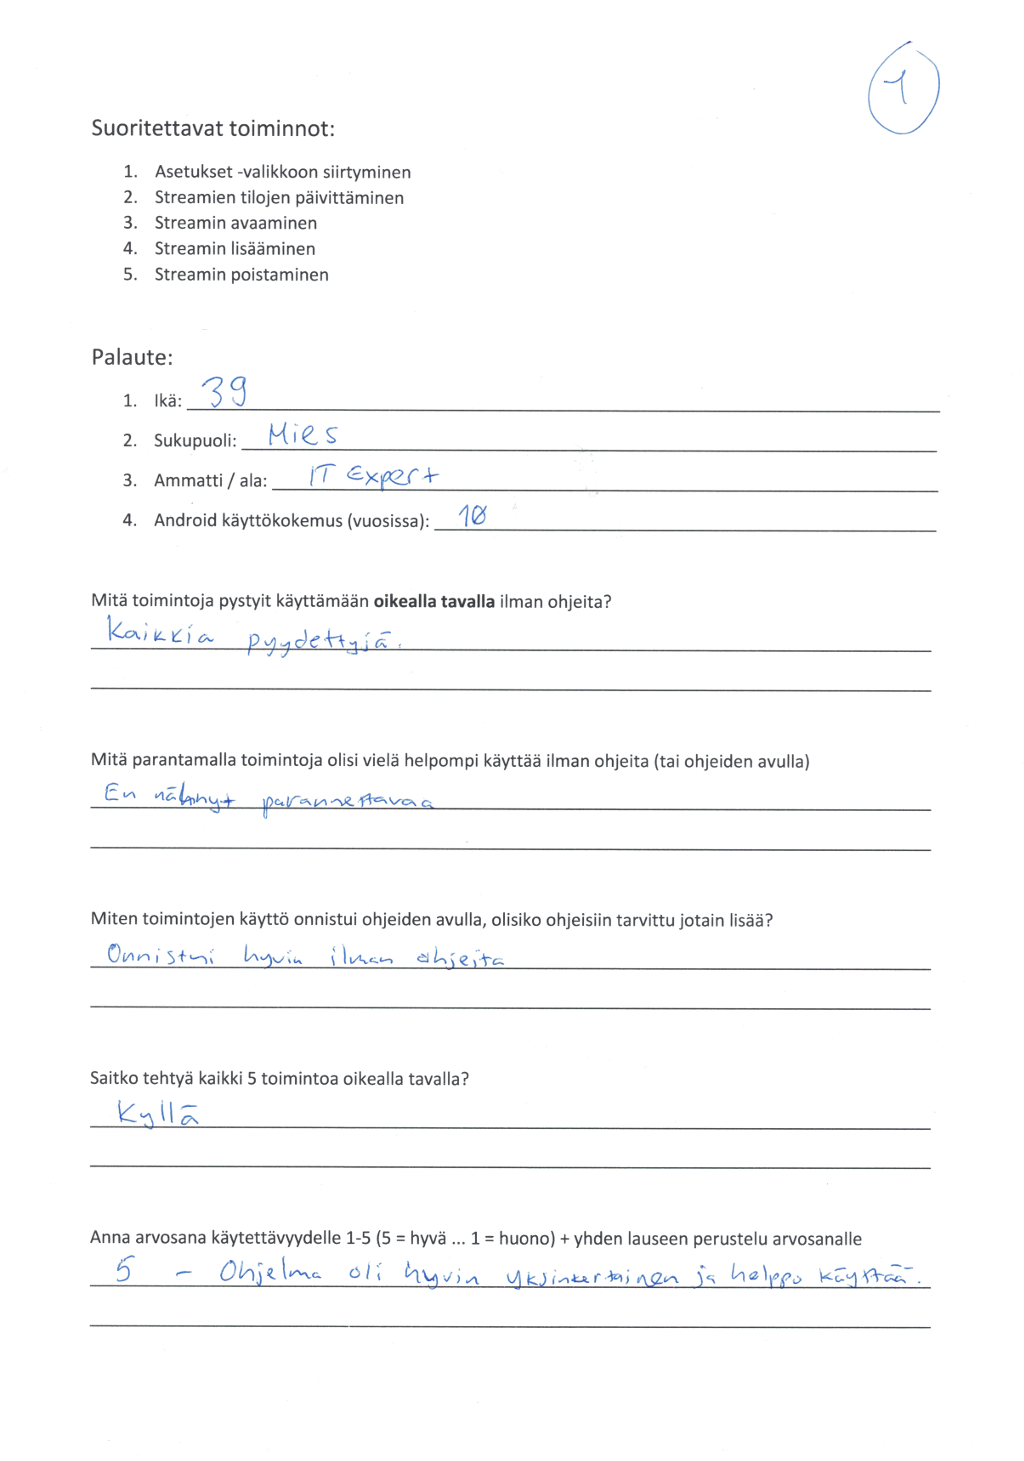 1
Suoritettavat toiminnot:
1. Asetukset -valikkoon siirtyminen
2. Streamien tilojen päivittäminen
3. Streamin avaaminen
4. Streamin lisääminen
5. Streamin poistaminen
Palaute:
1. Ikä: 39
2. Sukupuoli: Mies
3. Ammatti / ala: IT Expert
4. Android käyttökokemus (vuosissa): 10
Mitä toimintoja pystyit käyttämään oikealla tavalla ilman ohjeita?
Kaikkia pyydettyjä.
Mitä parantamalla toimintoja olisi vielä helpompi käyttää ilman ohjeita (tai ohjeiden avulla)
En nähnyt parannettavaa
Miten toimintojen käyttö onnistui ohjeiden avulla, olisiko ohjeisiin tarvittu jotain lisää?
Onnistui hyvin ilman ohjeita
Saitko tehtyä kaikki 5 toimintoa oikealla tavalla?
Kyllä
Anna arvosana käytettävyydelle 1-5 (5 = hyvä ... 1 = huono) + yhden lauseen perustelu arvosanalle
5 - Ohjelma oli hyvin yksinkertainen ja helppo käyttää.